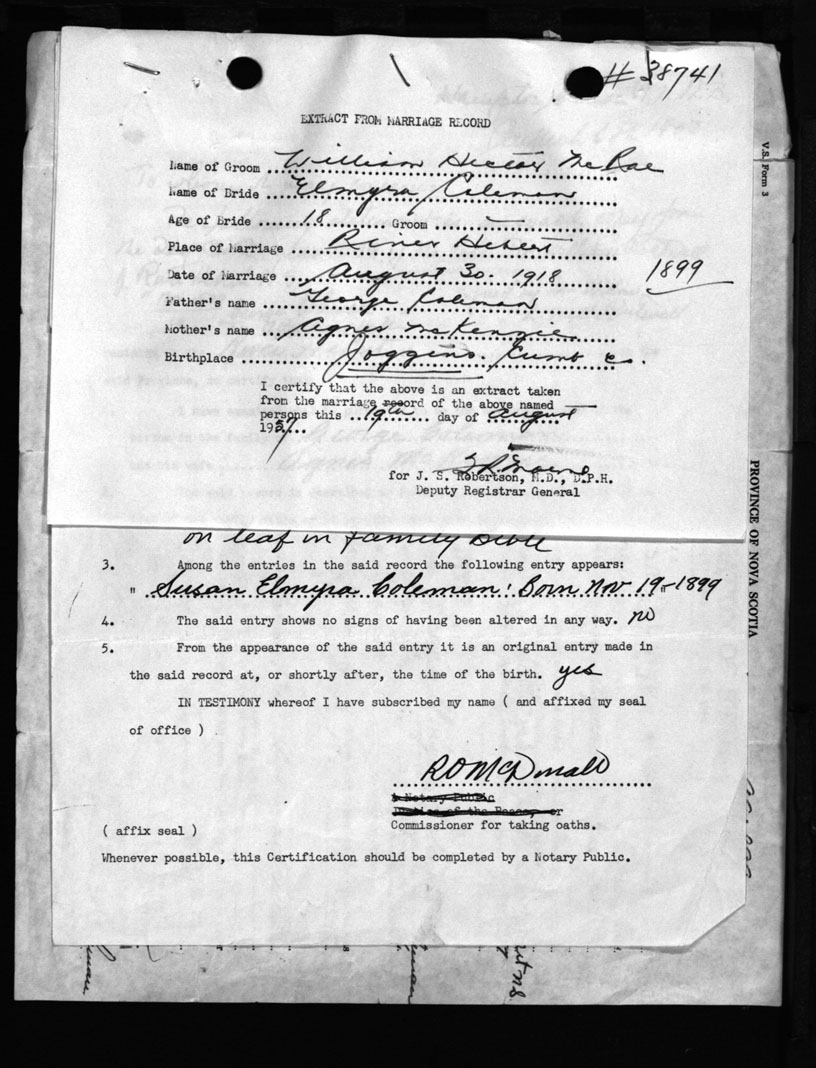 # 38741
EXTRACT FROM MARRIAGE RECORD
Name of Groom ... William Hector McRae
Name of Bride ... Elmyra Coleman
Age of Bride ... 18 ........ Groom ... — ...
Place of Marriage ... River Hebert
Date of Marriage ... August 30. 1918 1899
Father's name ... George Coleman
Mother's name ... Agnes McKenzie
Birthplace ... Joggins. Cumb Co.
I certify that the above is an extract taken
from the marriage record of the above named
persons this ... 19th ... day of August
1957...
for J. S. Robertson, M.D., D.P.H.
Deputy Registrar General
V.S. Form 3
PROVINCE OF NOVA SCOTIA
on leaf in family Bible
3. Among the entries in the said record the following entry appears:
" Susan Elmyra Coleman: Born Nov 19 - 1899
4. The said entry shows no signs of having been altered in any way. no
5. From the appearance of the said entry it is an original entry made in
the said record at, or shortly after, the time of the birth. yes
IN TESTIMONY whereof I have subscribed my name ( and affixed my seal
of office ) .
R O McDonald
A Notary Public
Justice of the Peace, or
Commissioner for taking oaths.
( affix seal )
Whenever possible, this Certification should be completed by a Notary Public.